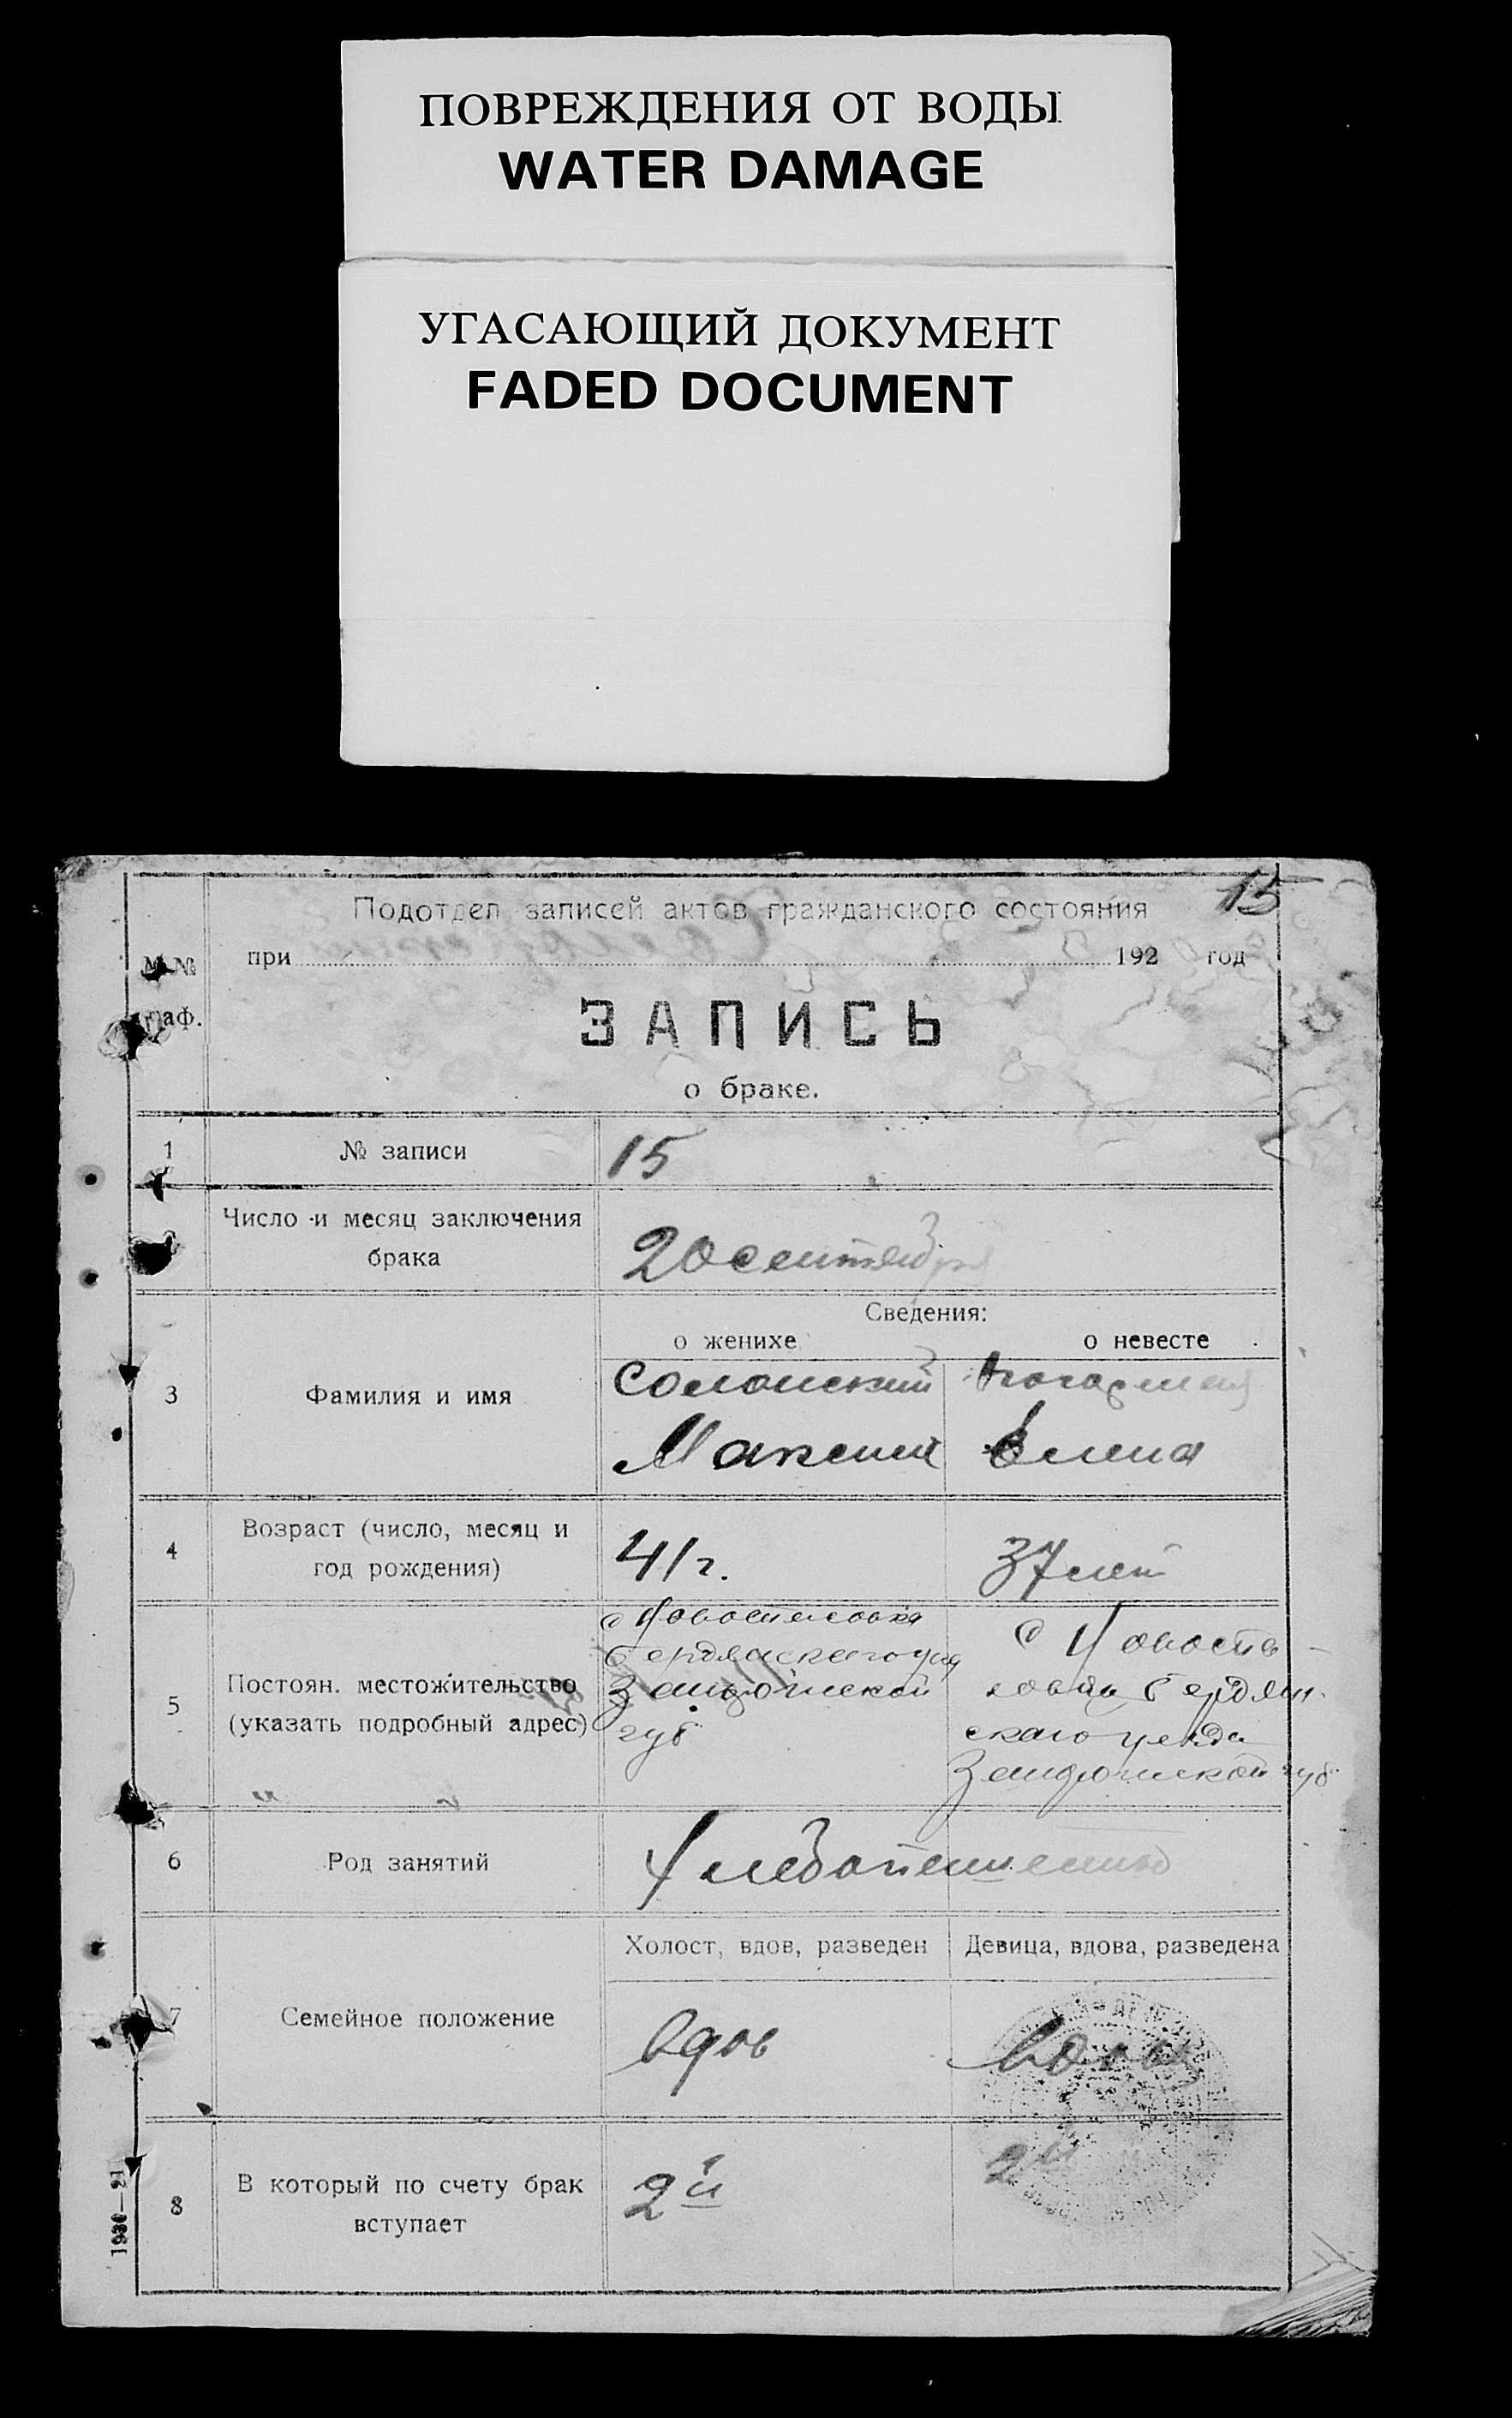 ПОВРЕЖДЕНИЯ ОТ ВОДЫ
WATER DAMAGE
УГАСАЮЩИЙ ДОКУМЕНТ
FADED DOCUMENT
15
Подотдел записей актов гражданского состояния
при 192 год
№№
раф.
ЗАПИСЬ
о браке.
1 № записи 15
Число и месяц заключения
брака
20 сентября
Сведения:
о женихе о невесте
3 Фамилия и имя
Максим Елена
4 Возраст (число, месяц и
год рождения)
41 г. 37 лет
5 Постоян. местожительство
(указать подробный адрес)
с Новоспасовка
Бердянскаго уез
Запорожской
губ
с Новоспа-
совка Бердян-
скаго уезда
Запорожской губ.
6 Род занятий Хлебопашество
7 Семейное положение
Холост, вдов, разведен Девица, вдова, разведена
Вдов Вдова
8 В который по счету брак
вступает
2й 2й